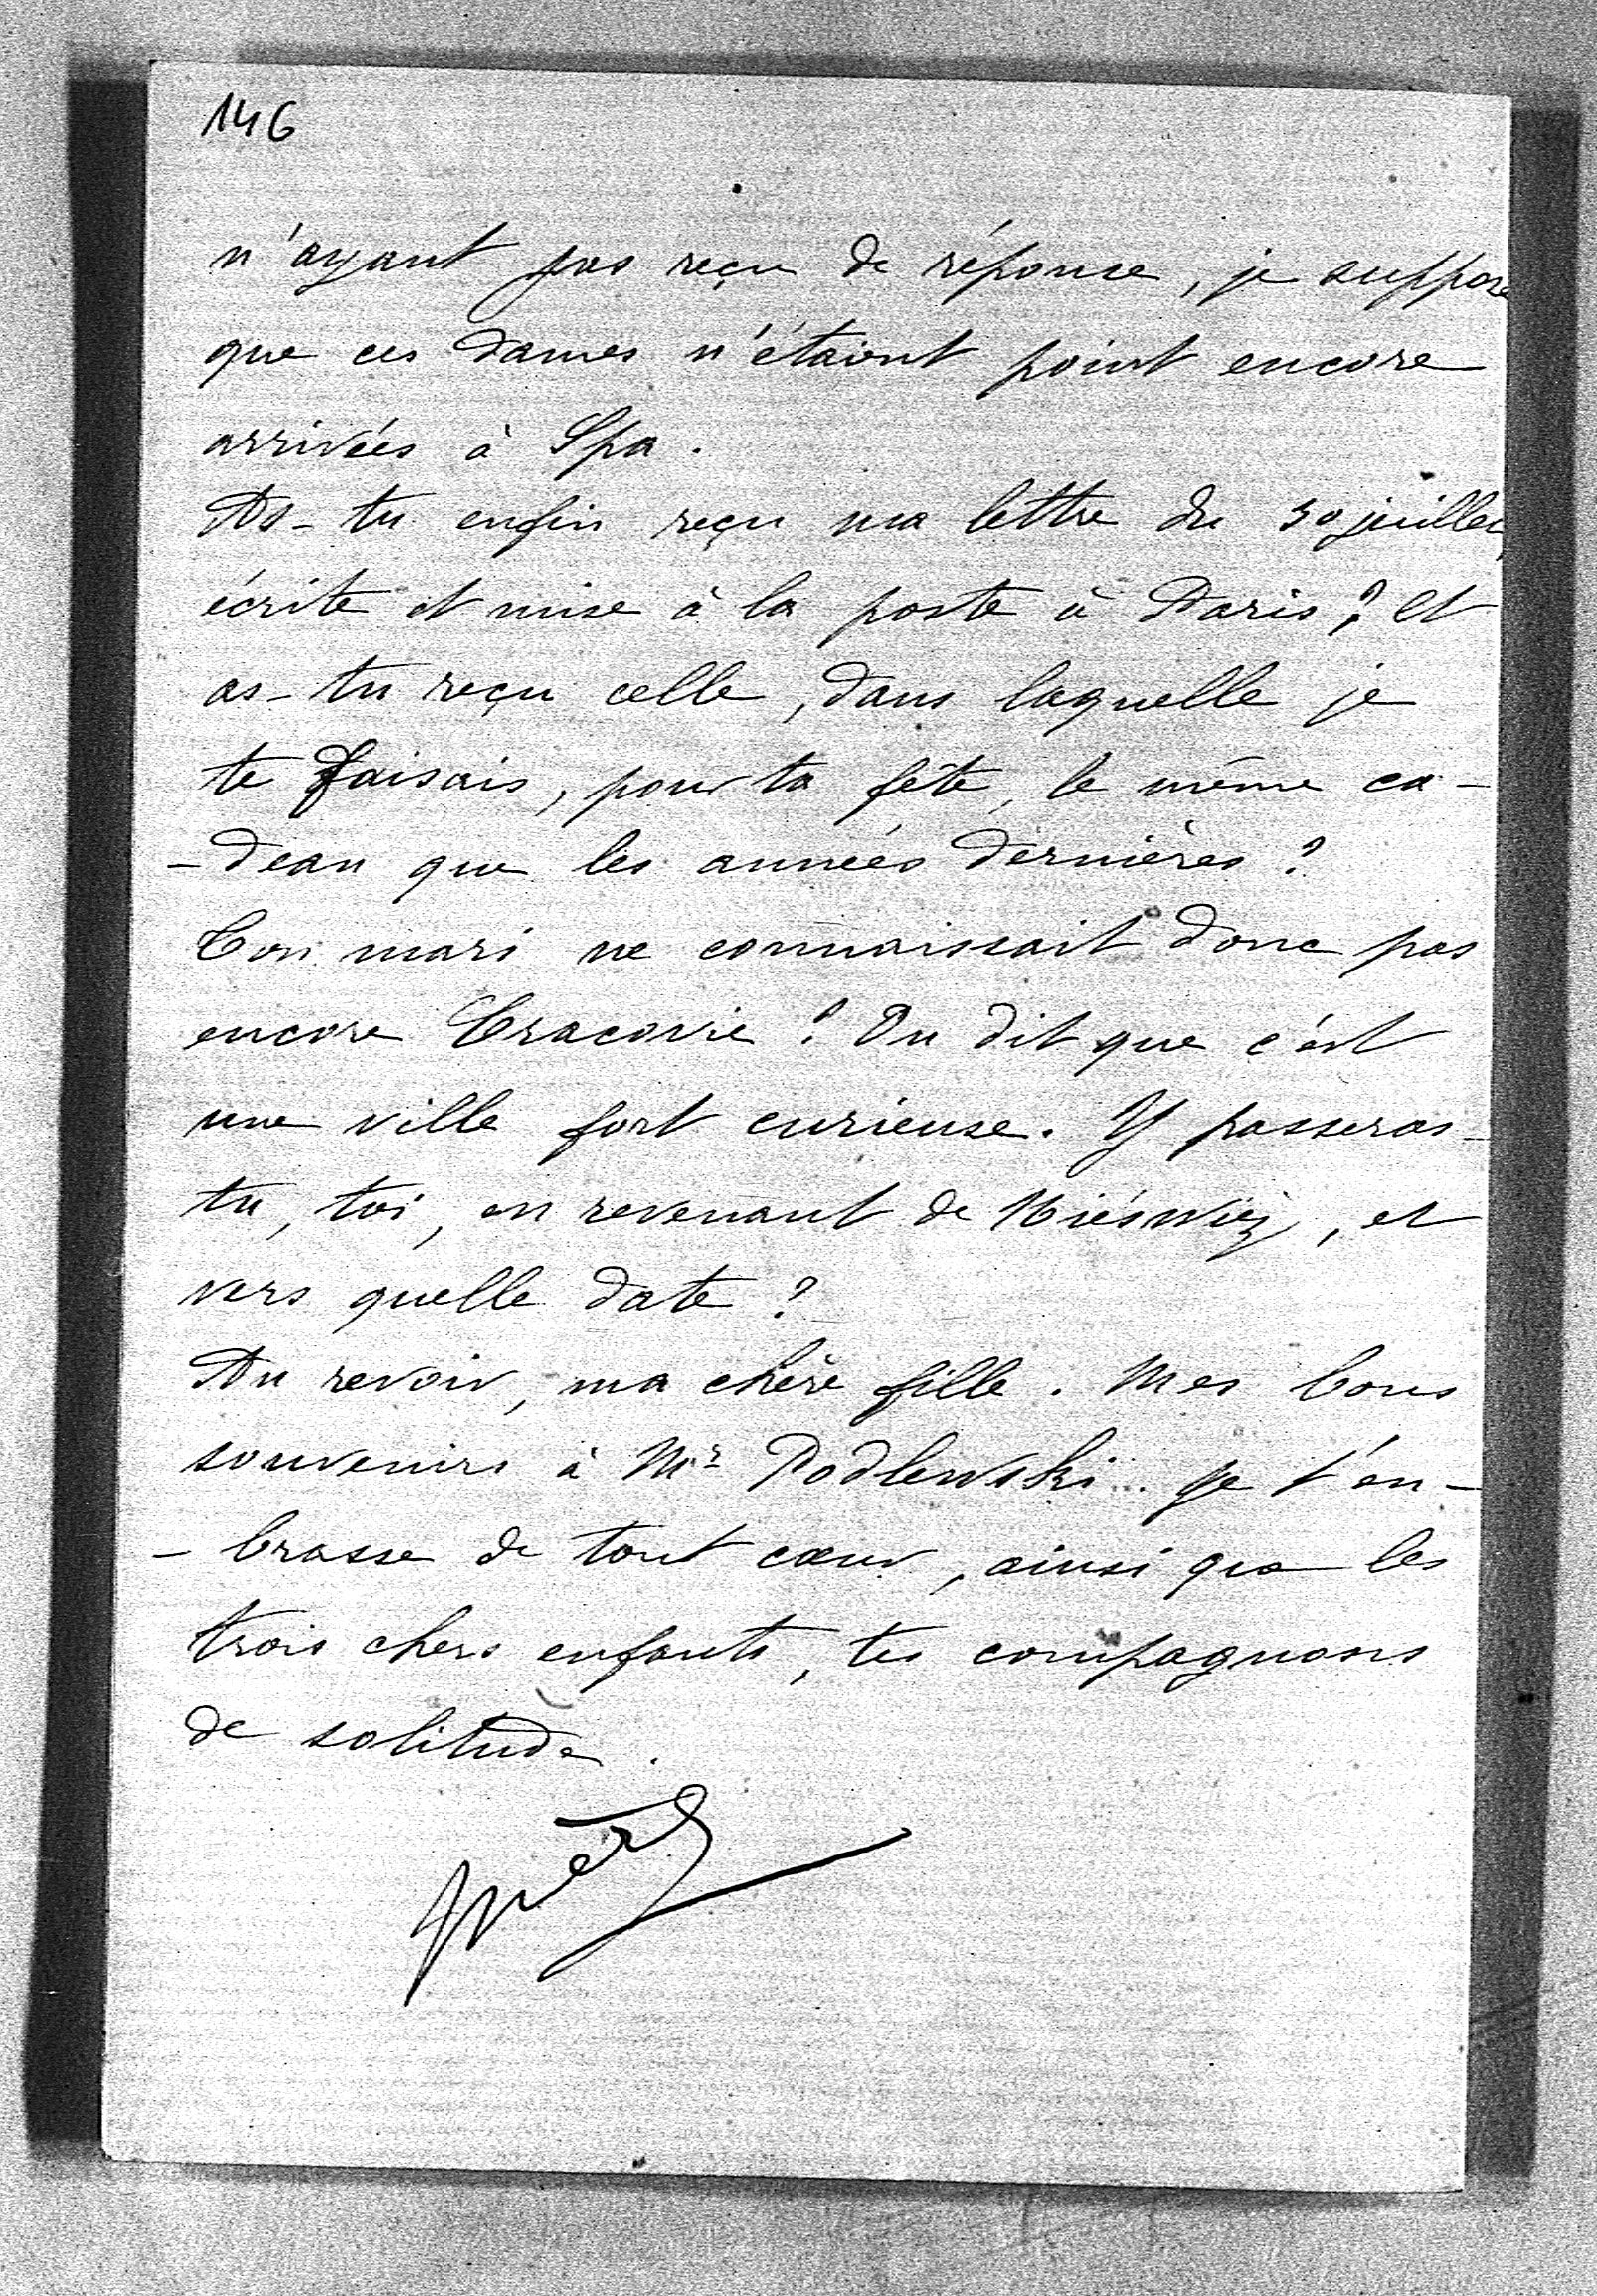 146
n'ayant pas reçu de réponse, je suppose
que ces dames n'étaient point encore
arrivées à Spa.
As-tu enfin reçu ma lettre du 30 juillet,
écrite et mise à la poste à Paris? et
as-tu reçu celle, dans laquelle je
te faisais, pour ta fête, le même ca-
-deau que les années dernières?
Ton mari ne connaissait donc pas
encore Cracovie? On dit que c'est
une ville fort curieuse. Y passeras-
tu, toi, en revenant de
, et
vers quelle date?
Au revoir, ma chère fille. Mes bons
souvenirs à Mr Podlewski. Je t'em-
-brasse de tout cœur, ainsi que les
trois chers enfants, tes compagnons
de solitude.